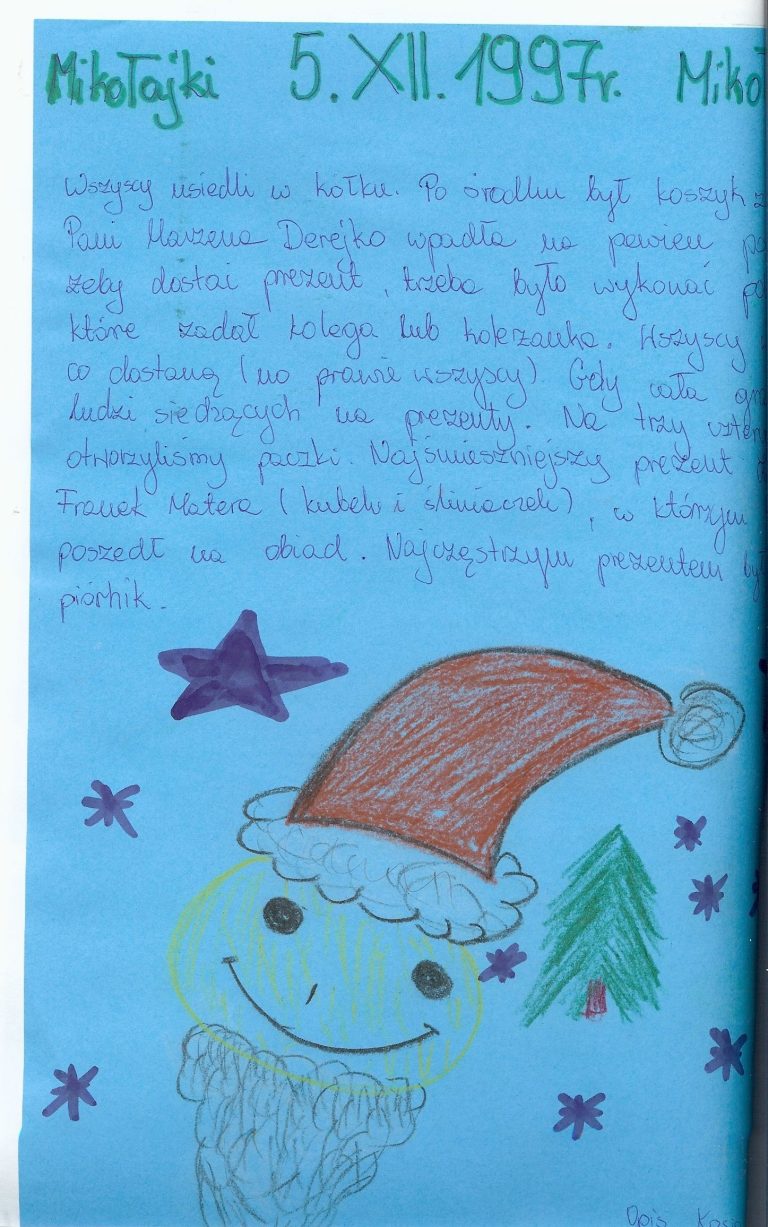 Mikołajki 5.XII.1997r. Miko
Wszyscy usiedli w kółku. Po środku był koszyk z
Pani Marzena Derejko wpadła na pewien po
żeby dostać prezent, trzeba było wykonać po
które zadał kolega lub koleżanka. Wszyscy
co dostaną (no prawie wszyscy). Gdy cała gr
ludzi siedzących na prezenty. Na trzy czter
otworzyliśmy paczki. Najśmieszniejszy prezent
Franek Matera (kubek i śliniaczek), w którzym
poszedł na obiad. Najczęstrzym prezentem był
piórnik.
Opis